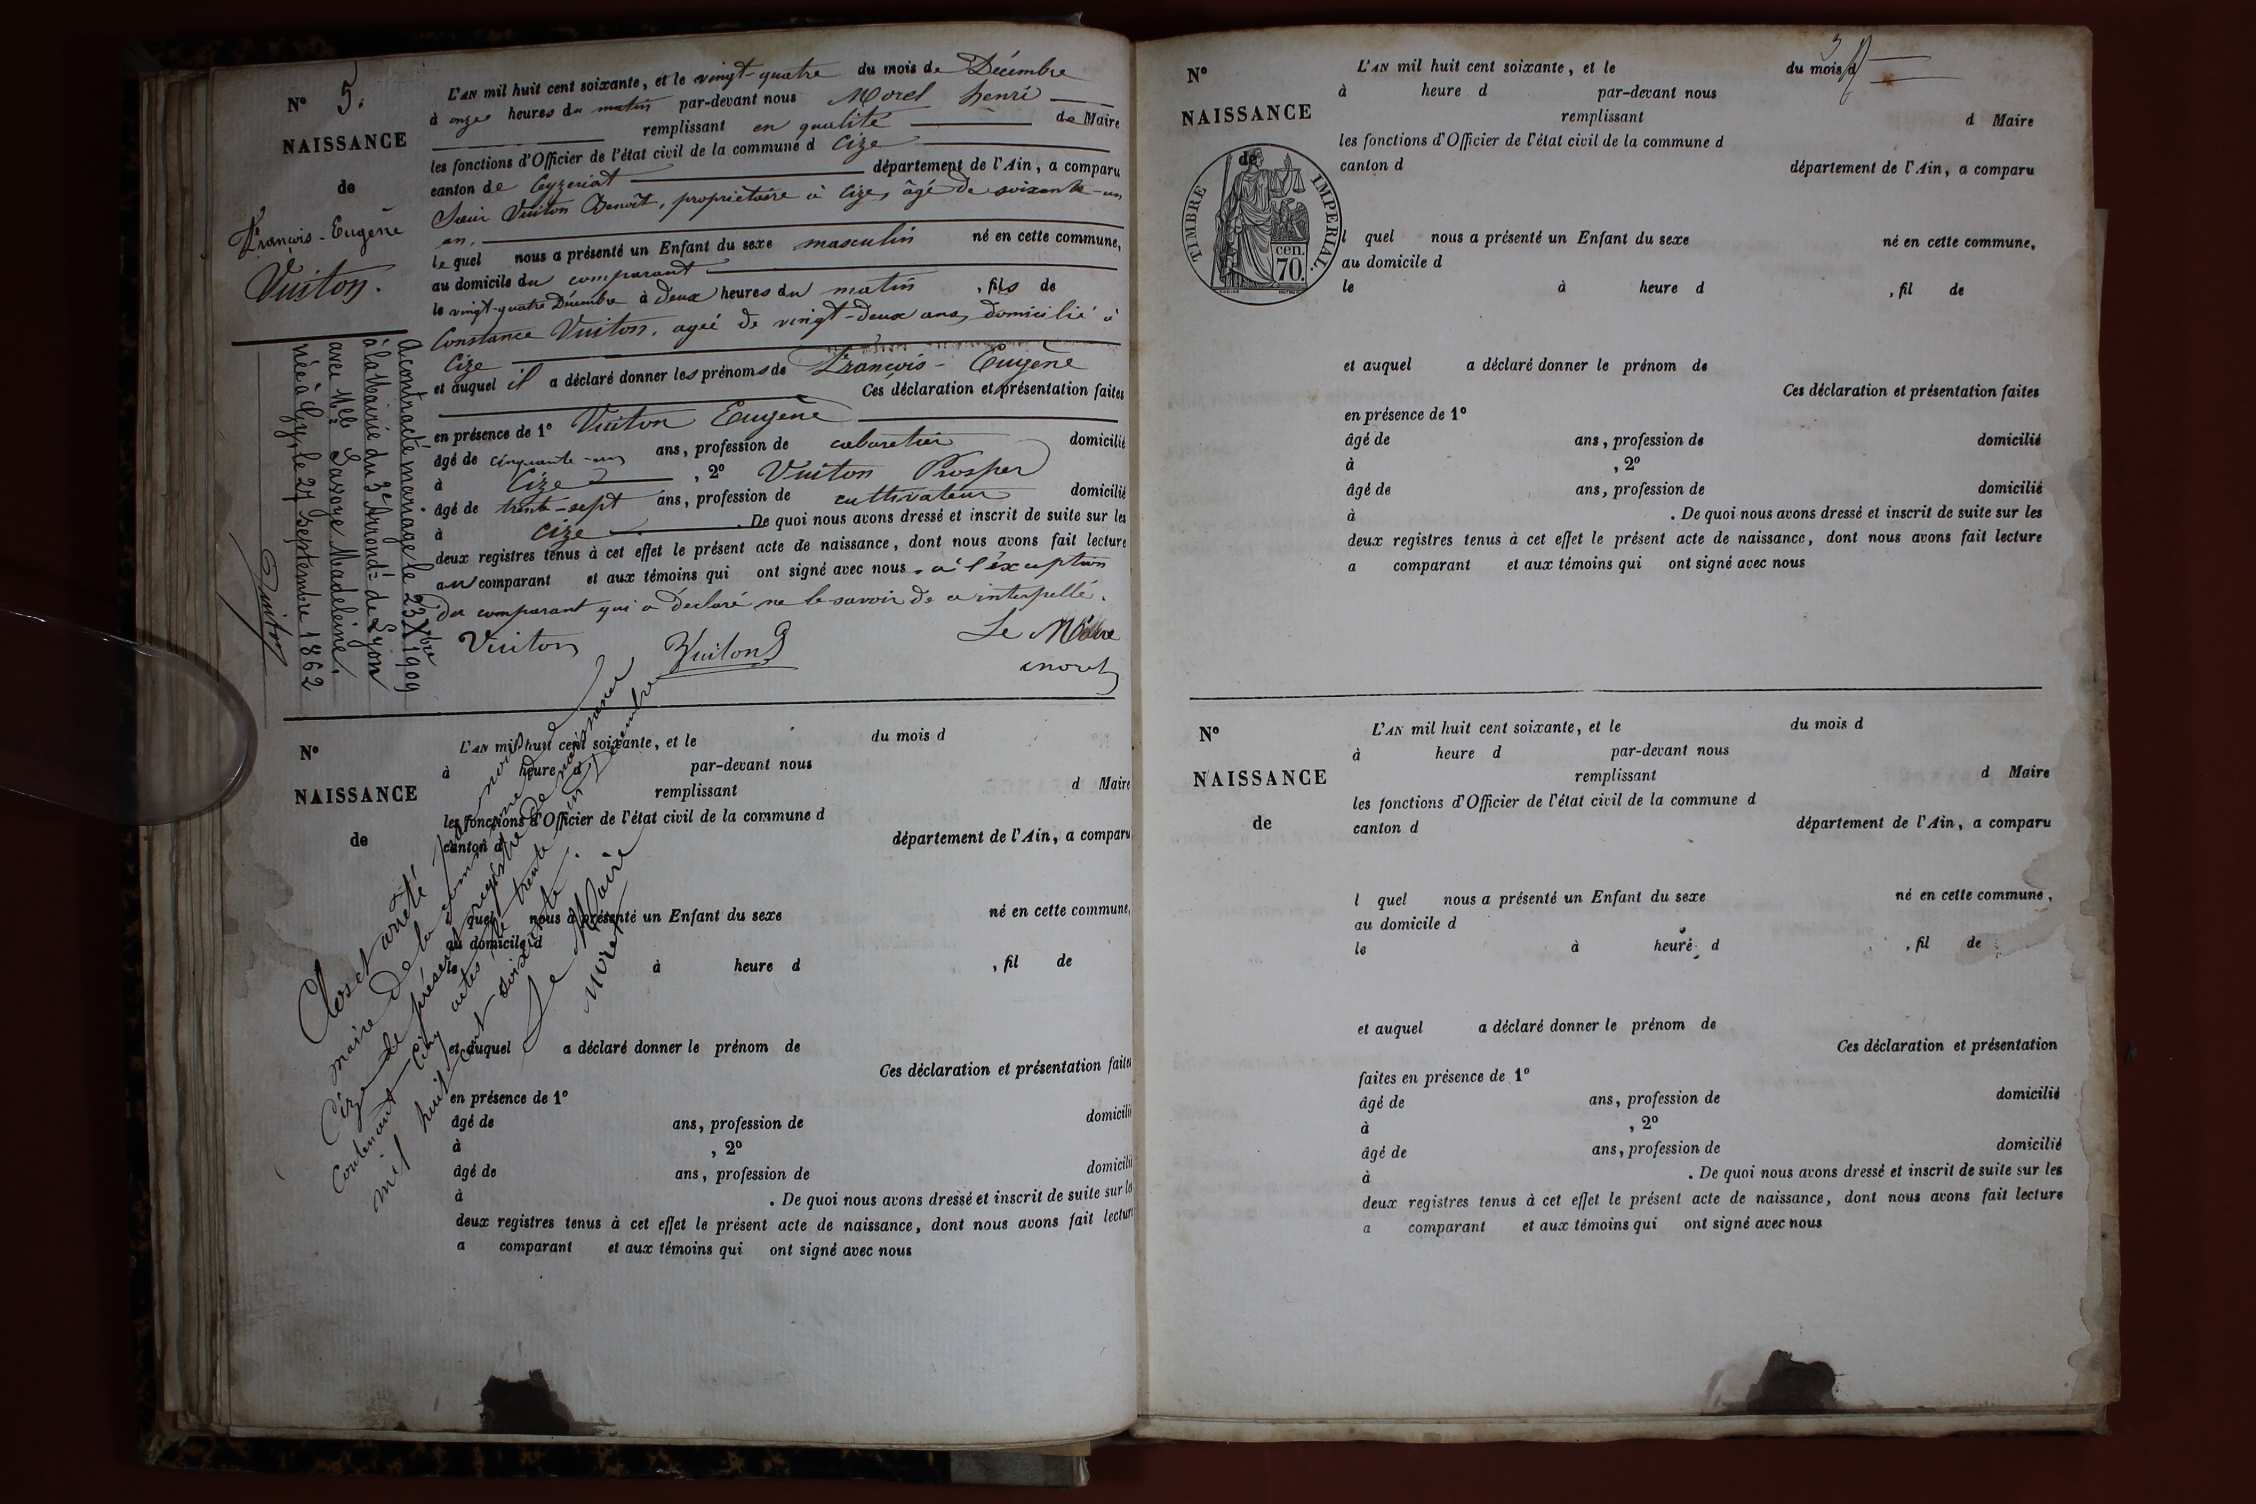 N° 5.
NAISSANCE
de
François-Eugène
Vuiton.
L'AN mil huit cent soixante, et le vingt-quatre du mois de Décembre
à onze heures du matin par-devant nous Morel henri
remplissant en qualité de Maire
les fonctions d'Officier de l'état civil de la commune d Cize
canton de Ceyzeriat département de l'Ain, a comparu
Sieur Vuiton Benoît, propriétaire à Cize, âgé de soixante-un
an,
le quel nous a présenté un Enfant du sexe masculin né en cette commune,
au domicile du comparant
le vingt-quatre Décembre à deux heures du matin, fils de
Constance Vuiton, ageé de vingt-deux ans, domicilié à
Cize
et auquel il a déclaré donner les prénoms de François-Eugène
Ces déclaration et présentation faites
en présence de 1° Vuiton Eugène
âgé de cinquante-un ans, profession de cabaretier domicilié
à Cize, 2° Vuiton Prosper
âgé de trente-sept ans, profession de cultivateur domicilié
à Cize. De quoi nous avons dressé et inscrit de suite sur les
deux registres tenus à cet effet le présent acte de naissance, dont nous avons fait lecture
au comparant et aux témoins qui ont signé avec nous, à l'éxception
du comparant qui a déclaré ne le savoir de ce interpellé.
Vuiton Vuiton Le Maire
morel
A contracté mariage le 23 Xbre 1909
à la Mairie du 3e Arrondt de Lyon
avec Melle Savoye Madeleine,
née à Lyon le 27 septembre 1862
N°
NAISSANCE
de
L'AN mil huit cent soixante, et le du mois d
à heure d par-devant nous
remplissant d Maire
les fonctions d'Officier de l'état civil de la commune d
canton d département de l'Ain, a comparu
quel nous a présenté un Enfant du sexe né en cette commune,
au domicile d
le à heure d , fil de
et auquel a déclaré donner le prénom de
Ces déclaration et présentation faites
en présence de 1°
âgé de ans, profession de domicilié
à , 2°
âgé de ans, profession de domicilié
à . De quoi nous avons dressé et inscrit de suite sur les
deux registres tenus à cet effet le présent acte de naissance, dont nous avons fait lecture
a comparant et aux témoins qui ont signé avec nous
Clos et arrêté par nous
maire de la commune de
Cize le présent registre de naissances
contenant cinq actes, le trente un Décembre
mil huit cent soixante.
Le Maire
morel
3
N°
NAISSANCE
de
TIMBRE IMPÉRIAL.
cen.
70.
L'AN mil huit cent soixante, et le du mois d
à heure d par-devant nous
remplissant d Maire
les fonctions d'Officier de l'état civil de la commune d
canton d département de l'Ain, a comparu
l quel nous a présenté un Enfant du sexe né en cette commune,
au domicile d
le à heure d , fil de
et auquel a déclaré donner le prénom de
Ces déclaration et présentation faites
en présence de 1°
âgé de ans, profession de domicilié
à , 2°
âgé de ans, profession de domicilié
à . De quoi nous avons dressé et inscrit de suite sur les
deux registres tenus à cet effet le présent acte de naissance, dont nous avons fait lecture
a comparant et aux témoins qui ont signé avec nous
N°
NAISSANCE
de
L'AN mil huit cent soixante, et le du mois d
à heure d par-devant nous
remplissant d Maire
les fonctions d'Officier de l'état civil de la commune d
canton d département de l'Ain, a comparu
l quel nous a présenté un Enfant du sexe né en cette commune,
au domicile d
le à heure d , fil de
et auquel a déclaré donner le prénom de
Ces déclaration et présentation
faites en présence de 1°
âgé de ans, profession de domicilié
à , 2°
âgé de ans, profession de domicilié
à . De quoi nous avons dressé et inscrit de suite sur les
deux registres tenus à cet effet le présent acte de naissance, dont nous avons fait lecture
a comparant et aux témoins qui ont signé avec nous